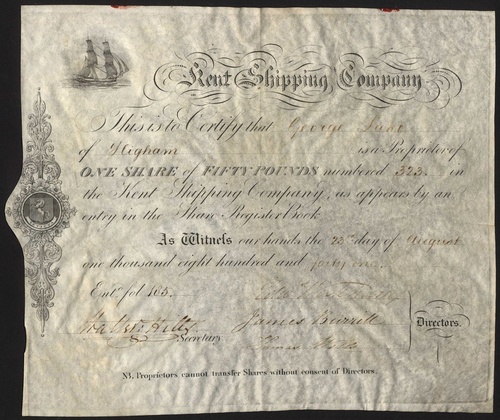 Kent Shipping Company
This is to Certify that George
of Higham is a Proprietor of
ONE SHARE of FIFTY POUNDS numbered 323 in
the Kent Shipping Company, as appears by an
entry in the Share Register Book
As Witness our hands the 23rd day of August
one thousand eight hundred and forty one
Entd. fol 165.
James Burrill
Secretary Thomas
Directors.
NB. Proprietors cannot transfer Shares without consent of Directors.